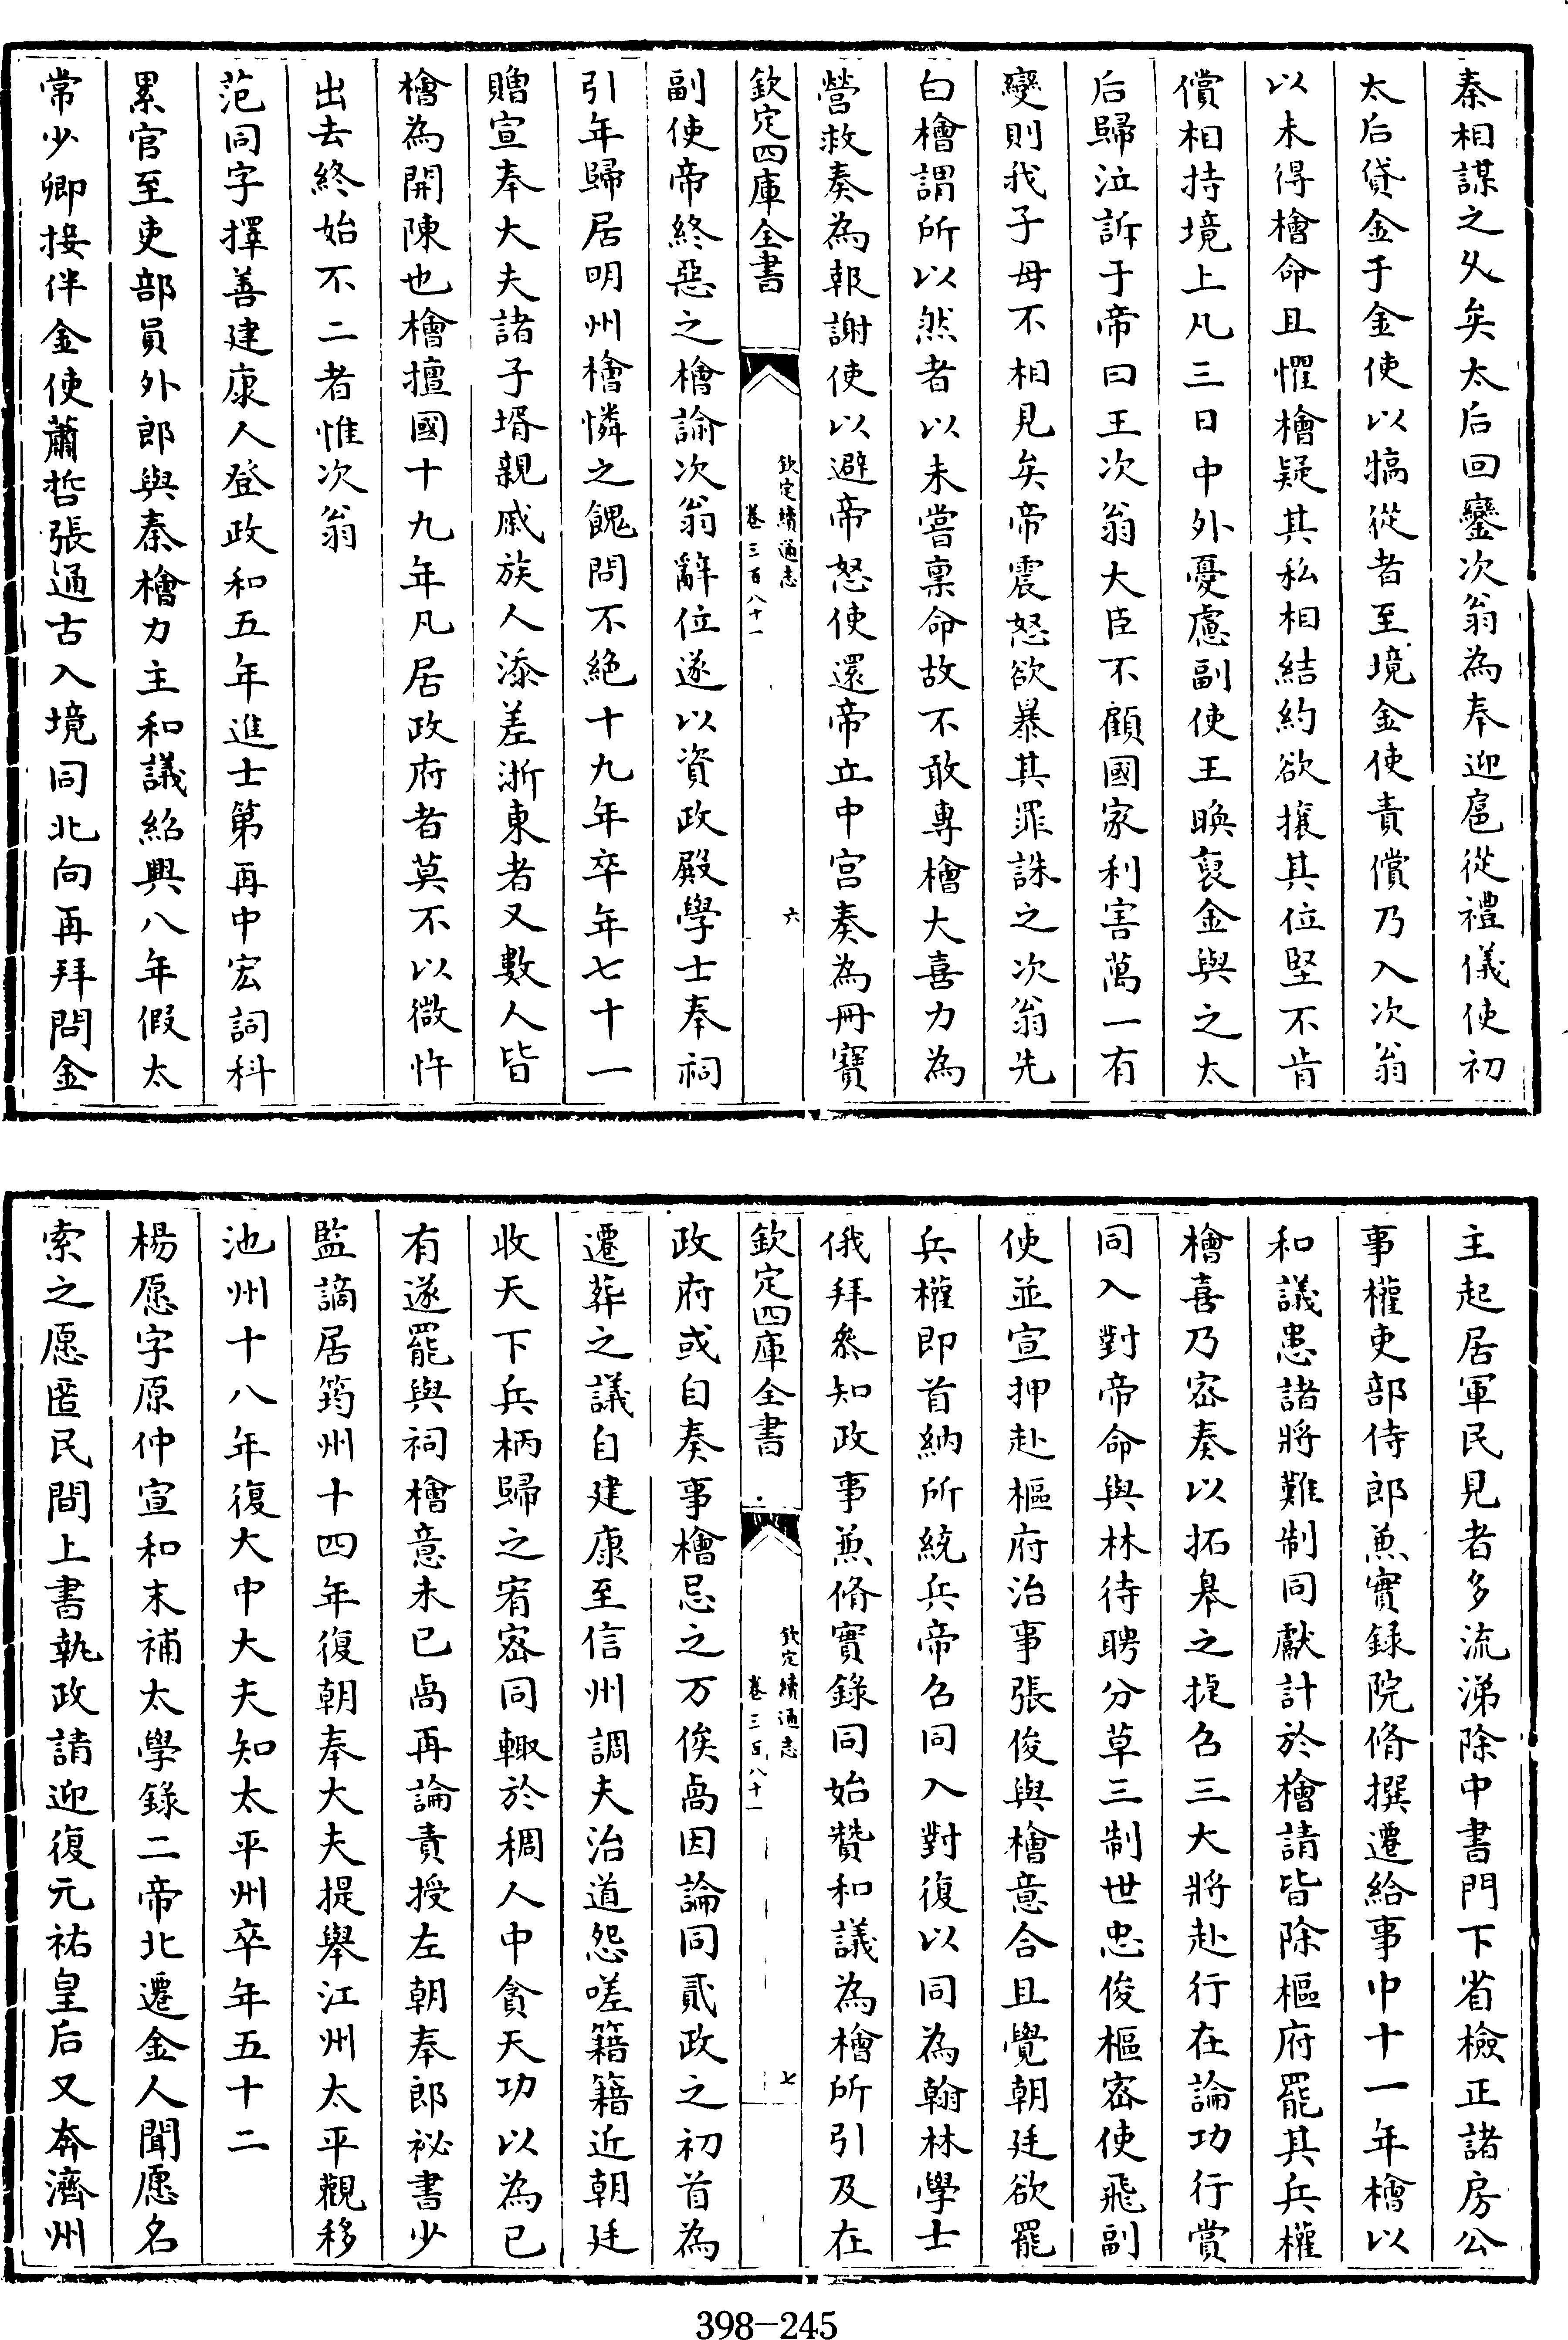 秦相謀之乆矣太后回鑾次翁為奉迎扈從禮儀使初
太后貸金于金使以犒從者至境金使責償乃入次翁
以未得檜命且懼檜疑其私相結約欲攘其位堅不肯
償相持境上凡三日中外憂慮副使王㬇裒金與之太
后歸泣訴于帝曰王次翁大臣不顧國家利害萬一有
變則我子母不相見矣帝震怒欲暴其罪誅之次翁先
白檜謂所以然者以未嘗稟命故不敢專檜大喜力為
營救奏為報謝使以避帝怒使還帝立中宮奏為冊寶
欽定四庫全書
欽定續通志
卷三百八十一
六
副使帝終惡之檜諭次翁辭位遂以資政殿學士奉祠
引年歸居明州檜憐之餽問不絕十九年卒年七十一
贈宣奉大夫諸子壻親戚族人添差浙東者又數人皆
檜為開陳也檜擅國十九年凡居政府者莫不以微忤
出去終始不二者惟次翁
范同字擇善建康人登政和五年進士第再中宏詞科
累官至吏部員外郎與秦檜力主和議紹興八年假太
常少卿接伴金使蕭哲張通古入境同北向再拜問金
主起居軍民見者多流涕除中書門下省檢正諸房公
事權吏部侍郎兼實錄院脩撰遷給事中十一年檜以
和議患諸將難制同獻計於檜請皆除樞府罷其兵權
檜喜乃密奏以拓皋之捷召三大將赴行在論功行賞
同入對帝命與林待聘分草三制世忠俊樞密使飛副
使並宣押赴樞府治事張俊與檜意合且覺朝廷欲罷
兵權即首納所統兵帝召同入對復以同為翰林學士
俄拜參知政事兼脩實錄同始贊和議為檜所引及在
欽定四庫全書
欽定續通志
卷三百八十一
七
政府或自奏事檜忌之万俟卨因論同貳政之初首為
遷葬之議自建康至信州調夫治道怨嗟籍籍近朝廷
收天下兵柄歸之宥密同輙於稠人中貪天功以為已
有遂罷與祠檜意未已卨再論責授左朝奉郎祕書少
監謫居筠州十四年復朝奉大夫提舉江州太平觀移
池州十八年復大中大夫知太平州卒年五十二
楊愿字原仲宣和末補太學錄二帝北遷金人聞愿名
索之愿匿民間上書執政請迎復元祐皇后又奔濟州
398-245